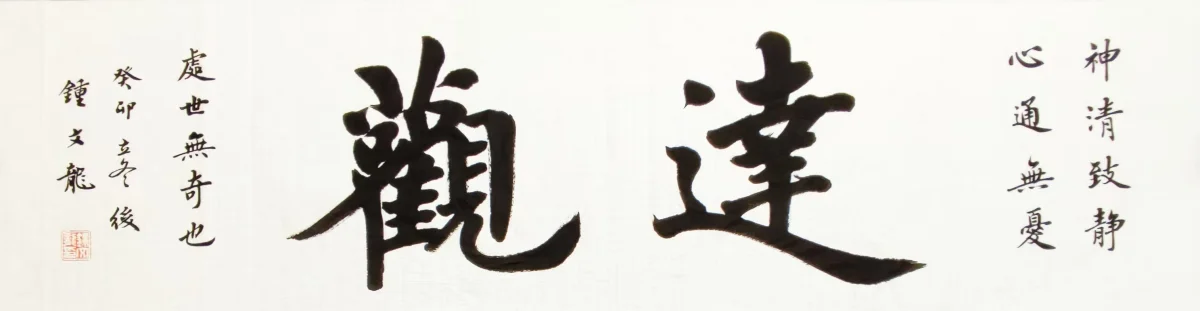 神清致静
心通無憂
達觀
處世無奇也
癸卯立冬後
鍾文龍